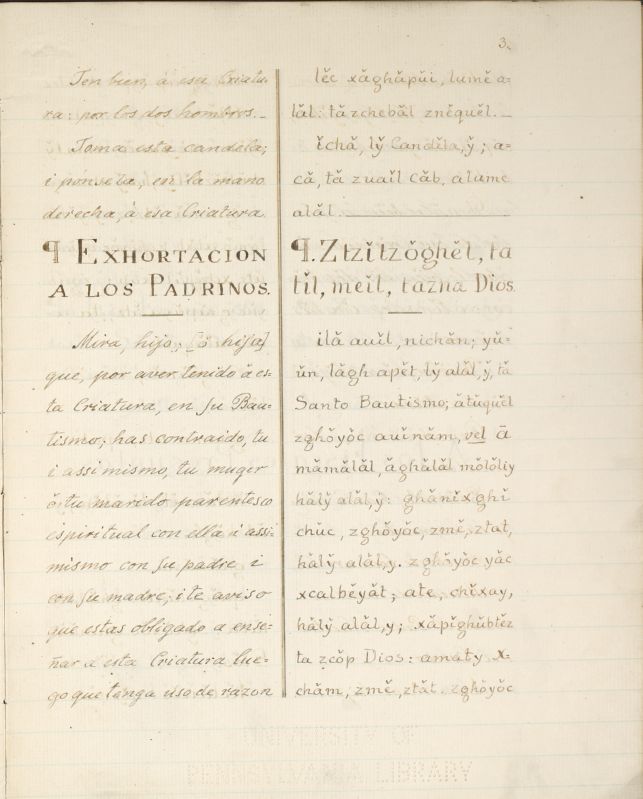 3.
Ten bien, á esa Criatu-
ra: por los dos hombros._
Toma esta candela;
i ponsela, en la mano
derecha, á esa Criatura.
¶ EXHORTACION
A LOS PADRINOS.
Mira, hijo; [ŏ hija]
que, por aver tenido ă es-
ta Criatura, en su Bau-
tismo; has contraido, tu
i assi mismo, tu muger
ŏ, tu marido parentesco
espiritual con ella i assi-
mismo con su padre i
con su madre; i te aviso
que estas obligado a ense-
ñar a esta Criatura lue-
go que tenga uso de razon
lĕc xăghăpŭi, lumĕ a-
lăl: tăzchebăl znĕquĕl._
ĭchă, lў Candĭla, ў; a-
că, tă zuaĭl Căb. alume
alăl.
¶. Ztzĭtzŏghĕl, ta
tĭl, meĭl, tazna Dios.
ilă auĭl, nichăn; yŭ-
ŭn, lăgh apĕt, lў alăl, ў, tă
Santo Bautismo; ătŭquĕl
zghŏyŏc auĭnăm, vel ā
mămălăl, ăghălăl mŏlŏlĭy
hălў alăl, ў: ghănĭxghĭ
chŭc, zghŏyŏc, zmĕ, ztat,
hălў alăl, y. zghŏyŏc yăc
xcalbĕyăt; ate, chĭxay,
hălў alăl, y; xăpĭghŭbtĕz
ta zcŏp Dios: amăty x-
chăm, zmĕ, ztăt. zghŏyŏc
UNIVERSITY OF
PENNSYLVANIA LIBRARY